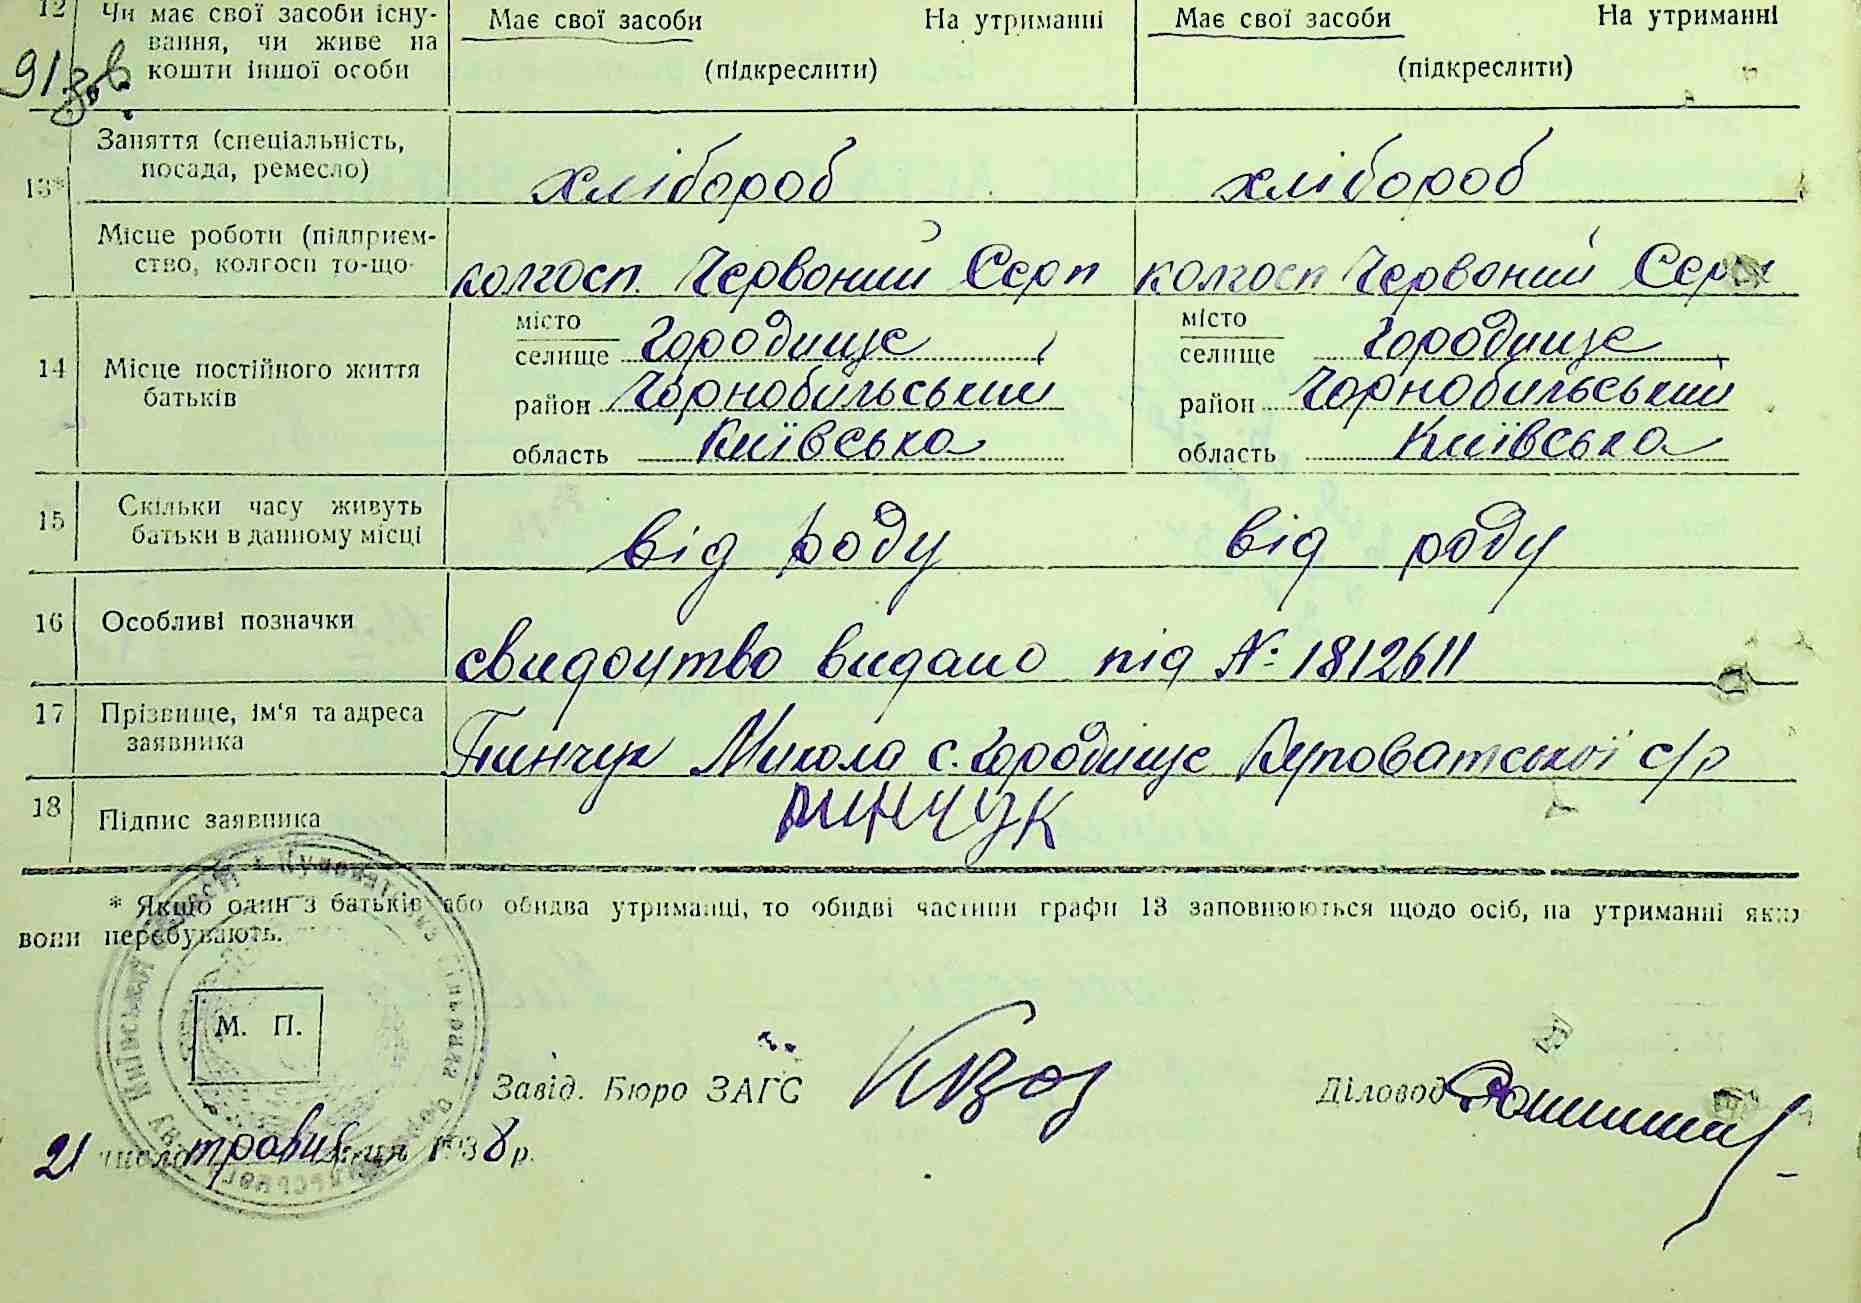 12 Чи має свої засоби існу- Має свої засоби На утриманні Має свої засоби На утриманні
вання, чи живе на
кошти іншої особи (підкреслити) (підкреслити)
91
Заняття (спеціальність,
13* посада, ремесло) хлібороб хлібороб
Місце роботи (підприєм-
ство, колгосп то-що колгосп Червоний Сєрп колгосп Червоний Сєрп
місто місто
селище Городище селище Городище
14 Місце постійного життя
батьків район Чорнобильський район Чорнобильський
область Київська область Київська
15 Скільки часу живуть
батьки в данному місці від роду від роду
16 Особливі позначки
свидоцтво видано під №: 1812611
17 Прізвище, ім'я та адреса
заявника Пинчук Микола с. Городище Куповатської с/р
18 Підпис заявника ПИНЧУК
* Якщо один з батьків або обидва утриманці, то обидві частини графи 13 заповнюються щодо осіб, на утриманні яких
вони перебувають.
М. П.
Завід. Бюро ЗАГС Діловод
21 число травня місяця 1938 р.